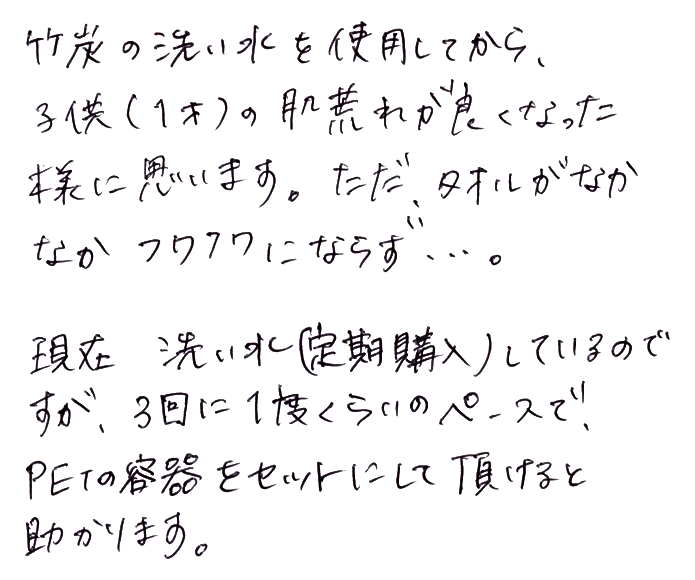 竹炭の洗い水を使用してから、
子供(1才)の肌荒れが良くなった
様に思います。ただ、タオルがなか
なかフワフワにならず…。
現在 洗い水(定期購入)しているので
すが、3回に1度くらいのペースで、
PETの容器をセットにして頂けると
助かります。